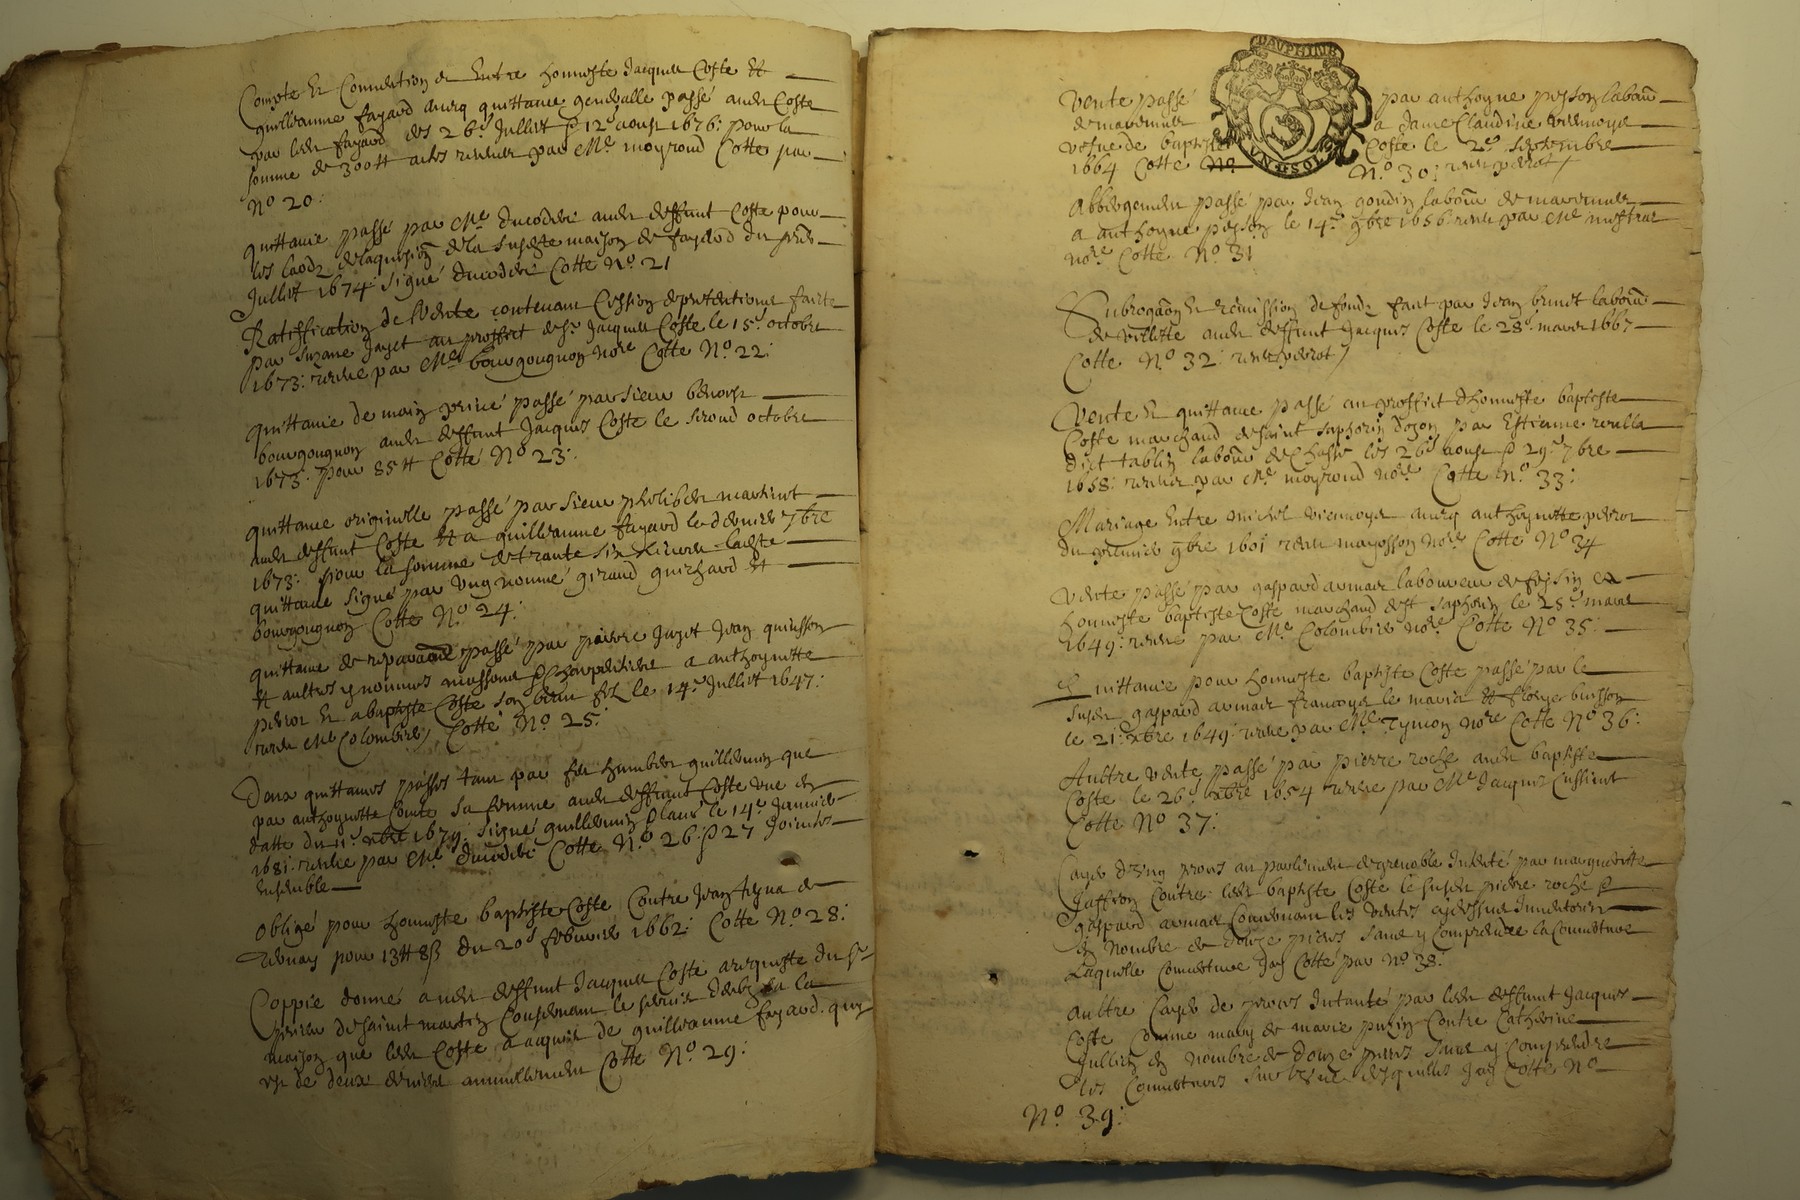 Compte Et Convention de Entre honneste Jacques Coste Et
guillaume fayard avecq quittance generalle passé audit Coste
par ledit fayard les 26e Juillet & 12e aoust 1676: pour la
somme de 300tt actes receues par Me moyroud Cotte par
No 20:
quittance passé par Me ducodere audit deffunt Coste pour
les laodz de la susdite maison de fayard du
Juillet 1674: signé ducodere Cotte No 21
Ratiffication de Vente contenant Cession de pretentions faicte
par Suzane Jayet au proffict de Sr Jacques Coste le 15e octobre
1673: receue par Me bourgougnon nore Cotte No 22:
quittance de main privé passé par sieur benoist
bourgougnon audit deffunt Jacques Coste le segond octobre
1673: pour 85tt Cotté No 23:
quittance originelle passé par sieur philibert martinot
audit deffunt Coste Et a guilleaume fayard le dernier 7bre
1673: pour la somme de trante six livres ladite
quittance signé par Ung nommé giraud guichard Et
bourgougnon Cotte No 24:
quittance de passé par pierre Jayet Jean quinsson
Et aultres y nommés massons & Charpentiers a anthoynette
perrot Et a baptiste Coste son beau filz le 14e Juillet 1647:
receu Me Colombier Cotté No 25:
Deux quittances passés tant par feu humbert guillermin que
par anthoynette Conte sa femme audit deffunt Coste une en
datte du 11e xbre 1679: signé guillermin & laut' le 14e Janvier
1681: receue par Me ducodere Cotte No 26: & 27 Joinctes
Ensemble
Obligé pour honneste baptiste Coste Contre Jean
pour 13tt 8ß du 20e febvrier 1662: Cotte No 28:
Coppie donné audit deffunt Jacques Coste a requeste du Sr
prieur de saint martin Concernant le servis deub sur la
maison que ledit Coste a acquis de guilleaume fayard quy
est de deux deniers annuellement Cotte No 29:
Vente passé par anthoyne peyson labour
de marennes a Jane Claudine viennoys
vefve de baptiste Coste le 20e septembre
1664 Cotte No No 30: receu perrot
Abbergement passé par Jean gondin labour de marennes
a anthoyne peyson le 14e 9bre 1656 receu par Me mistral
nore Cotte No 31
Subrogaon Et remission de fondz fait par Jean brunet labour
de villette audit deffunt Jacques Coste le 28e mars 1667
Cotte No 32: receu perrot
Vente Et quittance passé au proffict d'honneste baptiste
Coste marchand de saint saphorin dozon par Estienne reulla
dict tablin labour de Chasse les 26e aoust & 29e 7bre
1658: receue par Me moyroud nore Cotte No 33:
Mariage Entre michel viennoys avecq anthoynette perrot
du premier 9bre 1601 receu mayosson nore Cotte No 34
Vente passé par gaspard armant laboureur de feysin a
honneste baptiste Coste marchand de st saphorin le 28e mars
1649: receue par Me Colombier nore Cotte No 35:
Quittance pour honneste baptiste Coste passé par le
susdit gaspard armant francoys le marie Et florye buisson
le 21e xbre 1649: receue par Me Tymon nore Cotte No 36:
Aultre vente passé par pierre roche audit baptiste
Coste le 26e xbre 1654 receue par Me Jacques Cussinet
Cotte No 37:
Cayer d'Ung proces au parlement de grenoble Intenté par margueritte
Jaffron Contre ledit baptiste Coste le susdit pierre roche &
gaspard armant Concernant les ventes cydessus Inventories
En nombre de douze pieces sans y Comprendre la Couverture
Laquelle Couverture Jay Cotté par No 38:
Aultre Cayer de proces Intanté par ledit deffunt Jacques
Coste Comme mary de marie puzin Contre Catherine
Jullien En nombre de Douze pieces sans y Comprendre
les Couvertures sur l'une desquelles Jay Cotte No
No 39:
DAUPHINE